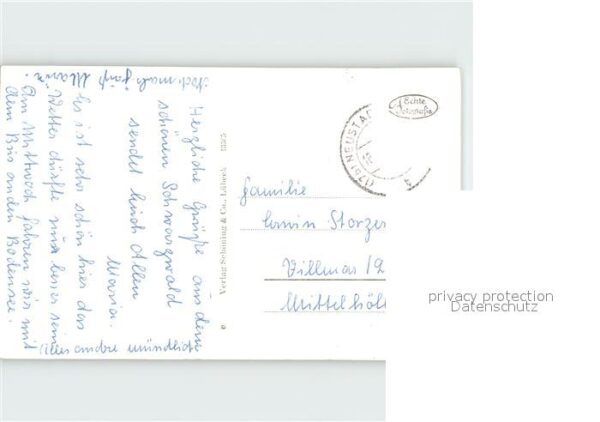 Nochmals Gruß Maria.
Herzliche Grüße aus dem
schönen Schwarzwald
sendet Euch Allen
Maria.
Es ist sehr schön hier das
Wetter dürfte nur besser sein
Am Mittwoch fahren wir mit
dem Bus an den Bodensee.
Alles andre mündlich
Verlag Schöning & Co., Lübeck
Echte Fotografie
(17b) NEUSTA
Familie
Erwin Storzer
Villmar/L
Mittelhöl
privacy protection
Datenschutz